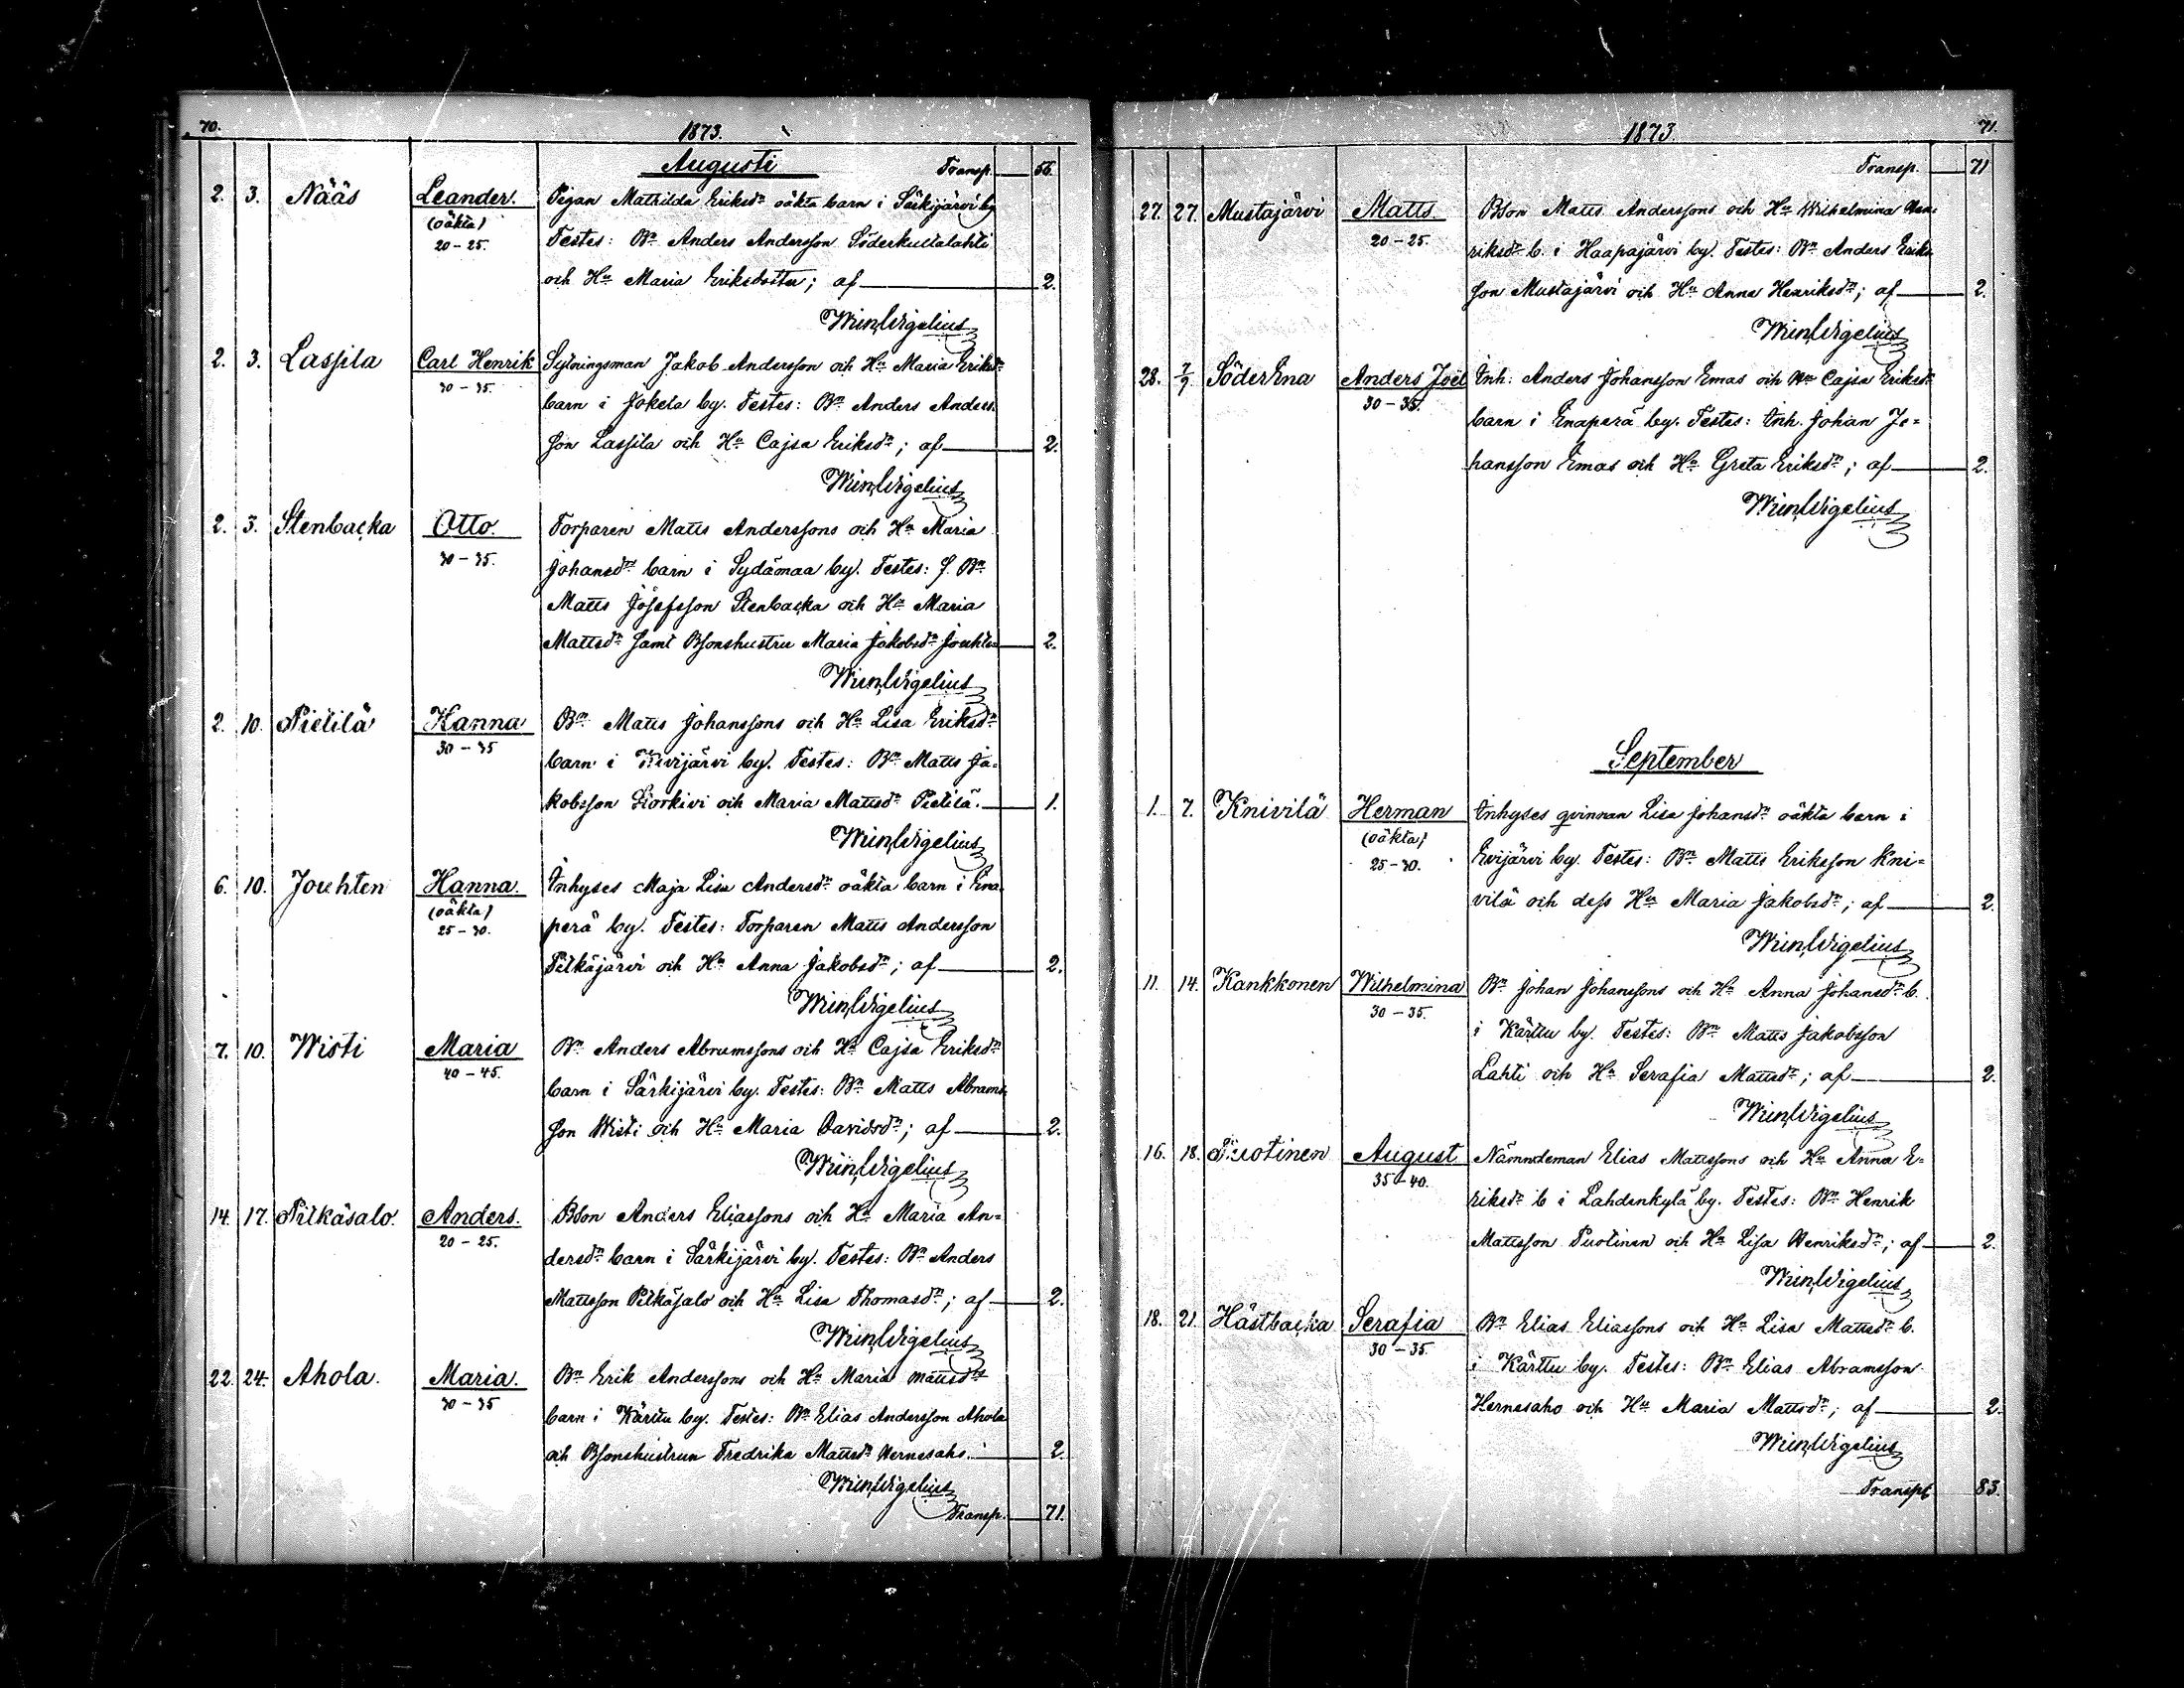 70.
1873.
Augusti
Transp. 56.
2. 3. Nääs Leander. Pigan Mathilda Eriksdr oäkta barn i Särkijärvi by
(oäkta)
20-25. Testes: Bn Anders Andersson Söderkultalahti
och Hu Maria Eriksdotter; af 2.
Wm Wigelius
2. 3. Lassila Carl Henrik Sytningsman Jakob Andersson och Hu Maria Eriksdr
30-35. barn i Jokela by. Testes: Bn Anders Anders-
son Lassila och Hu Cajsa Eriksdr; af 2.
Wm Wigelius
2. 3. Stenbacka Otto. Torparen Matts Anderssons och Hu Maria
30-35. Johansdr barn i Sydämaa by. Testes: f. Bn
Matts Josefsson Stenbacka och Hu Maria
Mattsdr samt Bsonshustru Maria Jakobsdr Jouhten 2.
Wm Wigelius
2. 10. Pietilä Hanna Bn Matts Johanssons och Hu Lisa Eriksdr
30-35 barn i Kivijärvi by. Testes: Bn Matts Ja-
kobsson Liorkivi och Maria Mattsdr Pietilä. 1.
Wm Wigelius
6. 10. Jouhten Hanna. Inhyses Maja Lisa Andersdr oäkta barn i Ena-
(oäkta)
25-30. perä by. Testes: Torparen Matts Andersson
Pitkäjärvi och Hu Anna Jakobsdr; af 2.
Wm Wigelius
7. 10. Wisti Maria Bn Anders Abramssons och Hu Cajsa Eriksdr
40-45. barn i Särkijärvi by. Testes: Bn Matts Abrams-
son Wisti och Hu Maria Davidsdr; af 2.
Wm Wigelius
14. 17. Pitkäsalo. Anders. Bson Anders Eliassons och Hu Maria An-
20-25. dersdr barn i Särkijärvi by. Testes: Bn Anders
Mattsson Pitkäsalo och Hu Lisa Thomasdr; af 2.
Wm Wigelius
22. 24. Ahola. Maria. Bn Erik Anderssons och Hu Maria Mattsdr
30-35 barn i Kärttu by. Testes: Bn Elias Andersson Ahola
och Bsonshustrun Fredrika Mattsdr Hernesaho. 2.
Wm Wigelius
Transp. 71.
1873. 71.
Transp. 71
27. 27. Mustajärvi Matts Bson Matts Anderssons och Hu Wilhelmina Hen-
20-25. riksdr b. i Haapajärvi by. Testes: Bn Anders Eriks-
son Mustajärvi och Hu Anna Henriksdr; af 2.
Wm Wigelius
28. 7/9. SöderEna Anders Joël Inh: Anders Johansson Emas och Hu Cajsa Eriksdr
30-35. barn i Enaperä by. Testes: Inh. Johan Jo=
hansson Emas och Hu Greta Eriksdr; af 2.
Wm Wigelius
September
1. 7. Knivilä Herman Inhyses qvinnan Lisa Johansdr oäkta barn i
(oäkta)
25-30. Evijärvi by. Testes: Bn Matts Eriksson Kni=
vilä och dess Hu Maria Jakobsdr; af 2.
Wm Wigelius
11. 14. Kankkonen Wilhelmina Bn Johan Johanssons och Hu Anna Johansdr b.
30-35. i Kärttu by. Testes: Bn Matts Jakobsson
Lahti och Hu Serafia Mattsdr; af 2.
Wm Wigelius
16. 18. Puotinen August Nämndeman Elias Mattssons och Hu Anna E=
35-40. riksdr b i Lahdenkylä by. Testes: Bn Henrik
Mattsson Puotinen och Hu Lisa Henriksdr; af 2.
Wm Wigelius
18. 21. Hästbacka Serafia Bn Elias Eliassons och Hu Lisa Mattsdr b.
30-35. i Kärttu by. Testes: Bn Elias Abramsson
Hernesaho och Hu Maria Mattsdr; af 2.
Wm Wigelius
Transpt 83.